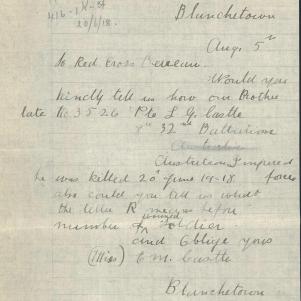 20/6/18.
Blanchetown
Aug. 5th
To Red Cross Bereau.
Would you
kindly tell us how our Brother
late No 3526 Pte L G. Castle
32nd Battalion
Australian Imperial
he was killed 20th June 1918 forces
also could you tell us what
the letter R means before
number
and Oblige yours
(Miss) E M. Castle
Blanchetown